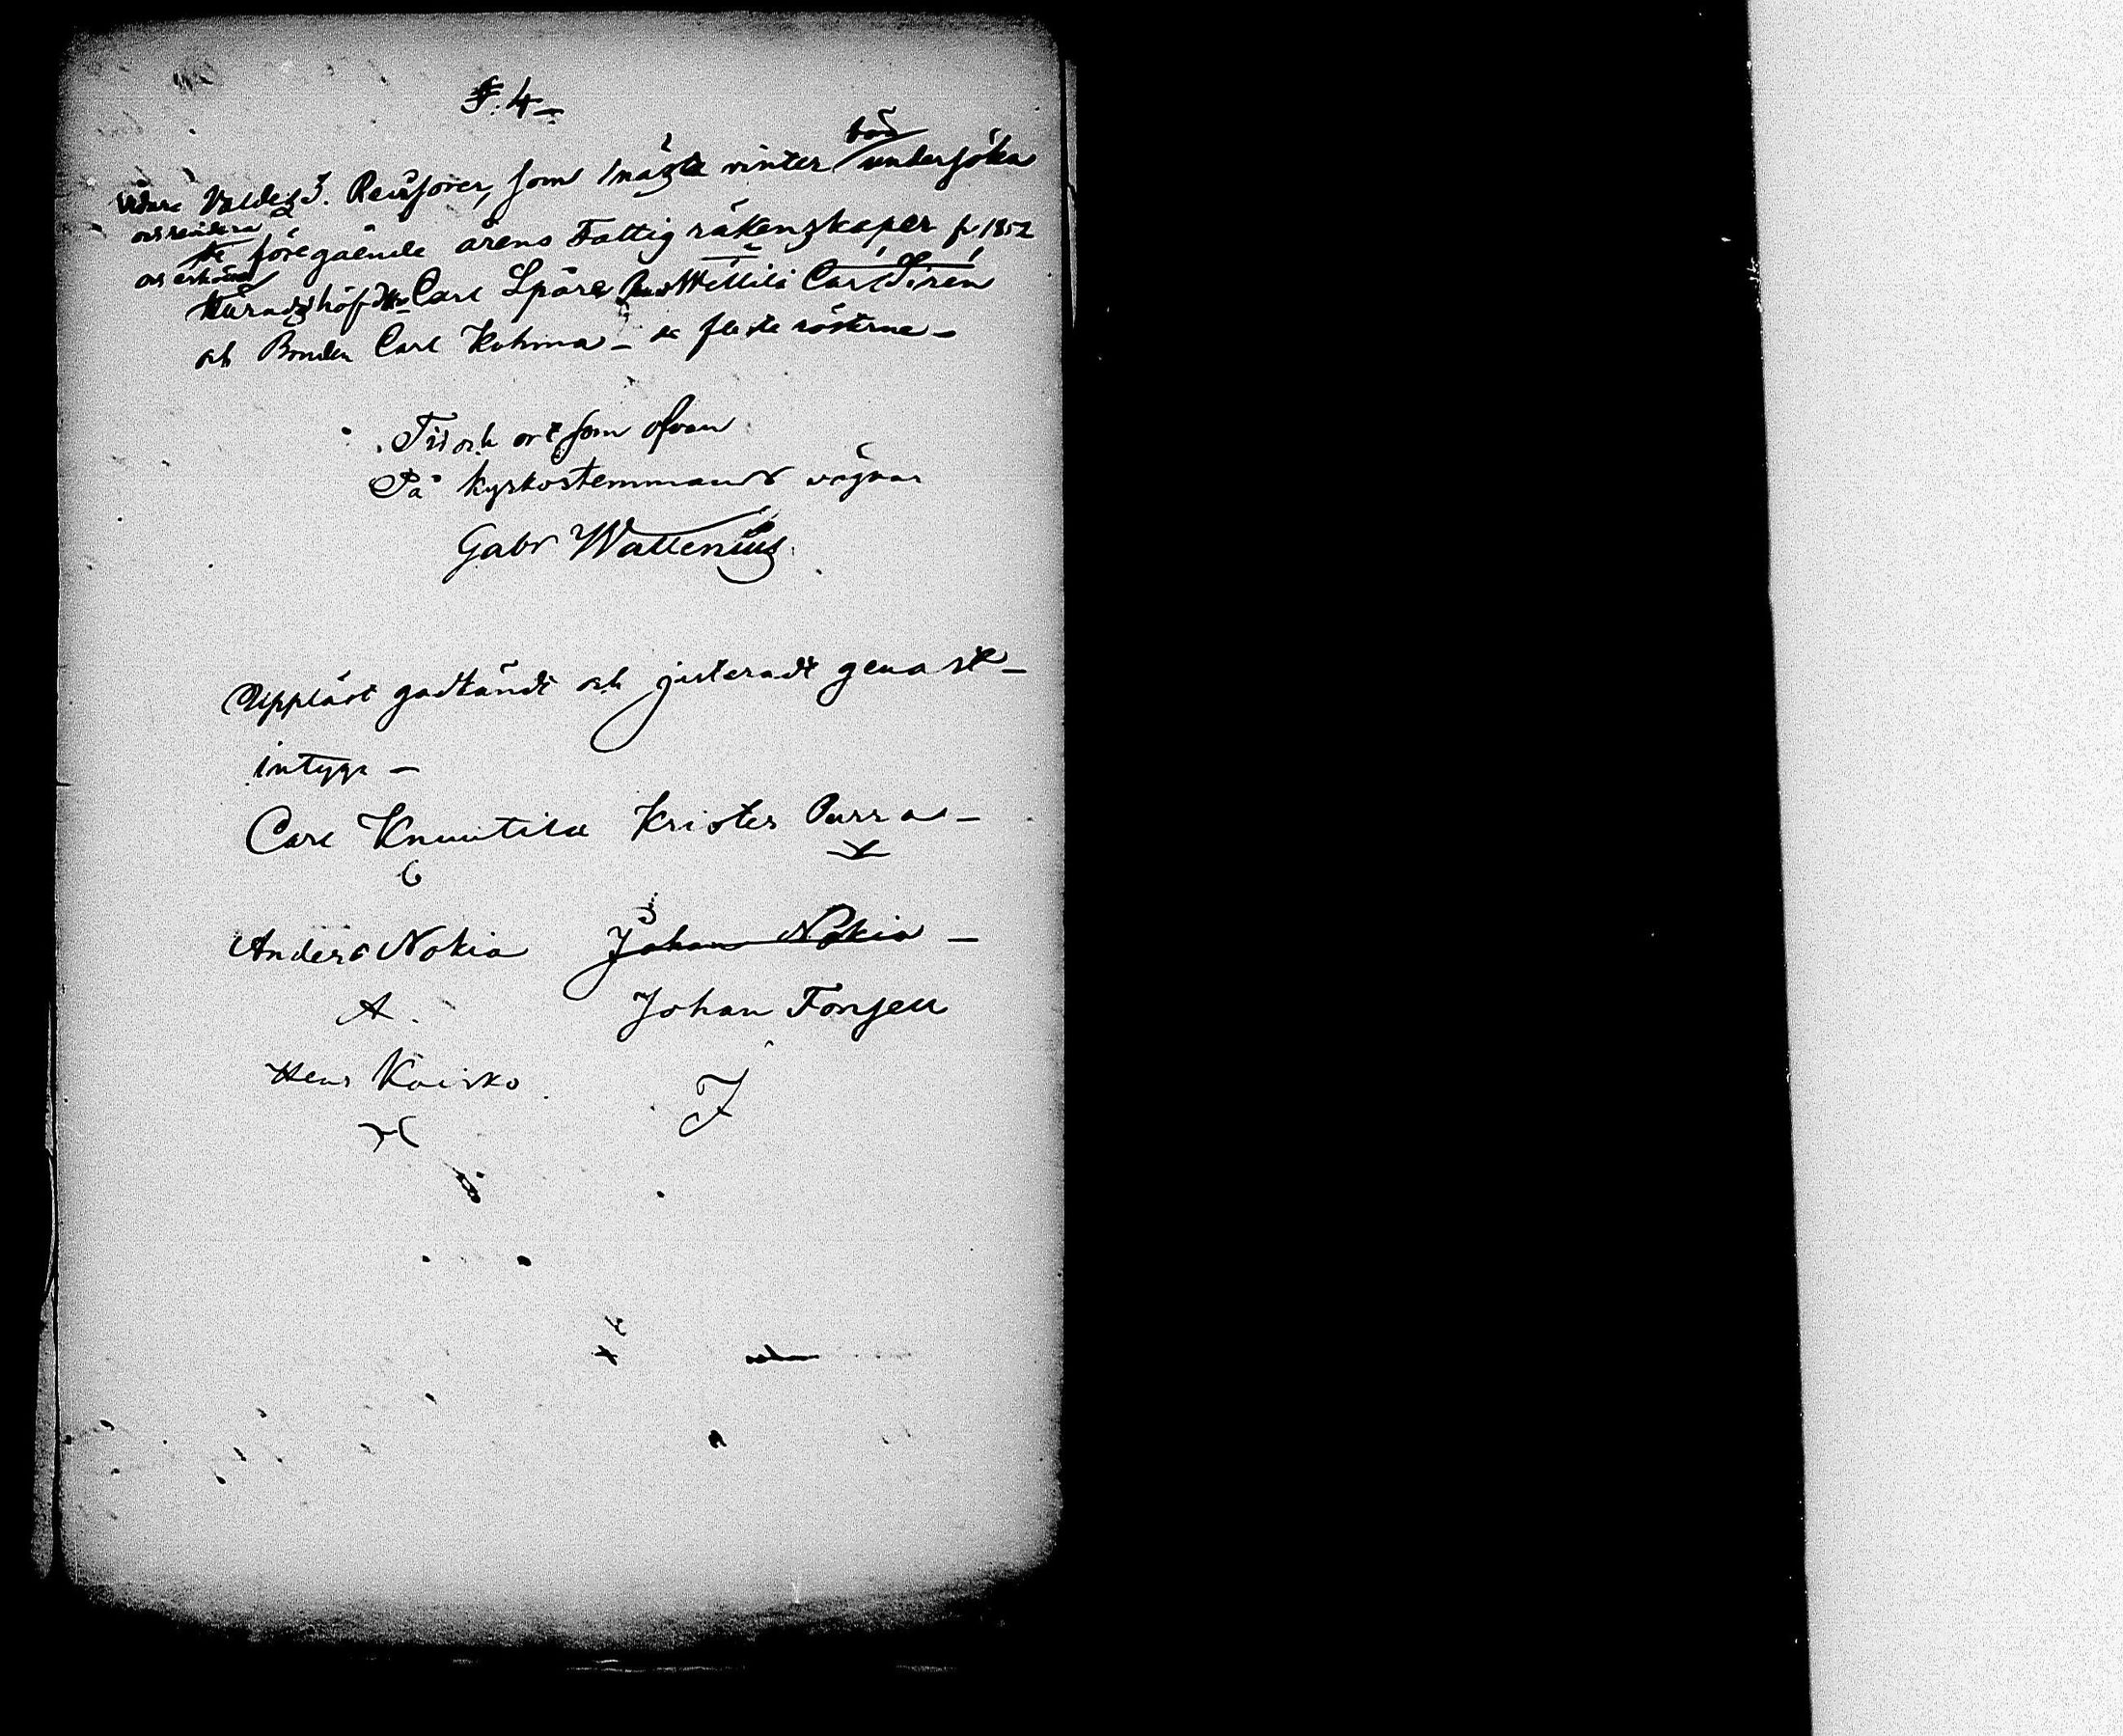 §. 4 –
vidare Valdes 3. Revisorer, som nästa vinter bör undersöka
och revidera
de föregående årens Fattig räkenskaper fr 1852
och erhöllo
Häradshöfd Carl Spåre Carl Sirén
och Bonden Carl Kohma – de flesta rösterne –
Tid och ort som ofvan
På Kyrkostemmans vägnar
Gabr Wallenius
Uppläst godkändt och justeradt genast –
intyga –
Carl Knuutila Krister Purra –
Anders Nokia Johan Nokia –
A. Johan Fonsell
Henr Koisko
J